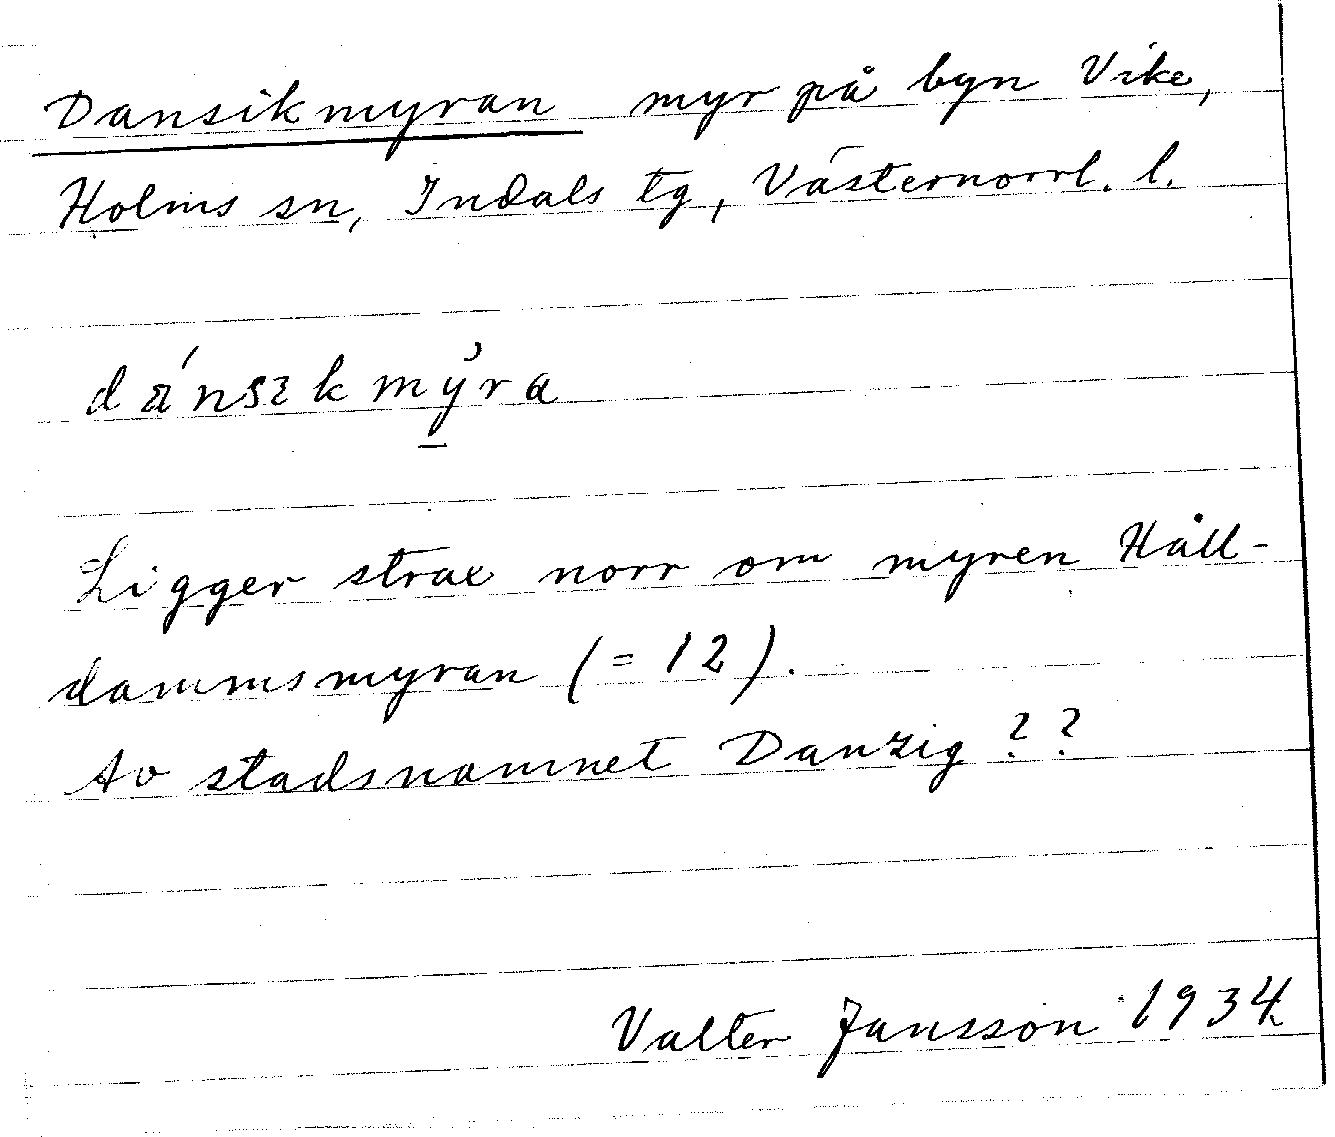 Dansikmyran myr på byn Vike,
Holms sn, Indals tg, Västernorrl. l.
dánsıkmy̠̓ra
Ligger strax norr om myren Håll-
dammsmyran (= 12).
Av stadsnamnet Danzig ??
Valter Jansson 1934